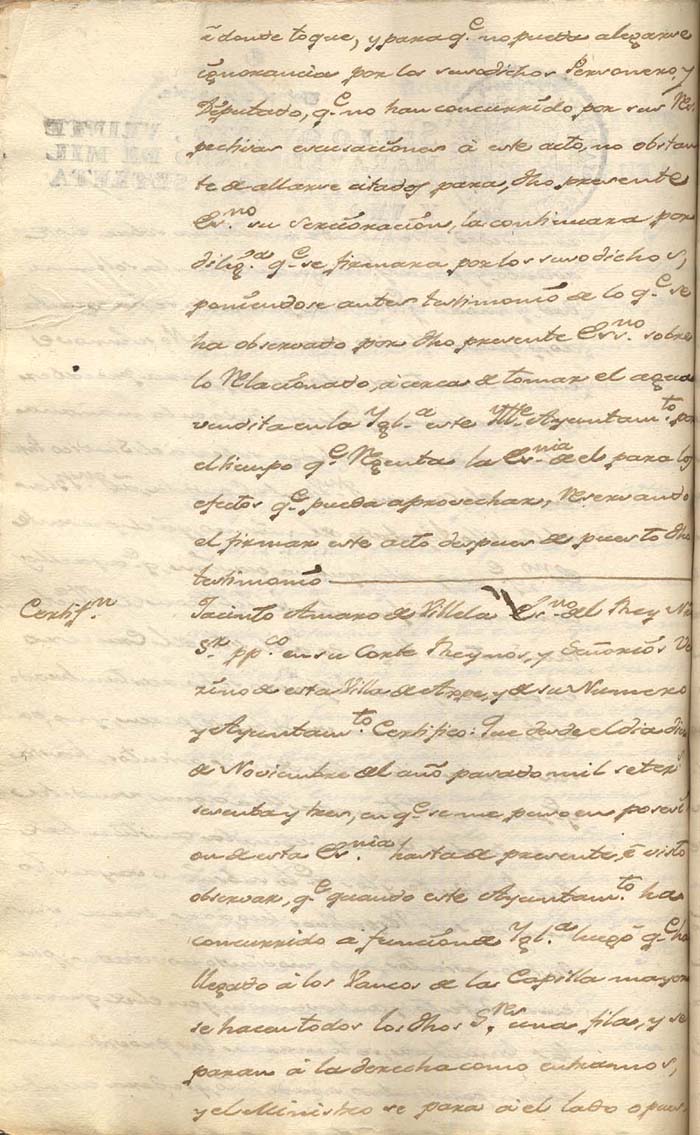 é donde toque, y para q.e no pueda alegarse
ignorancia por los susodichos Personero, y
Diputado, q.e no han concurrido por sus Res
pectivas escusaciones á este acto, no obstan
te de allarse citados para, dho presente
Es.no su sercioracion, la continuara por
dilig.a q.e se firmara por los susodichos,
poniendose antes testimonio de lo q.e se
ha observado por dho presente Ess.no sobre
lo Relacionado, á cerca de tomar el agua
vendita en la Ygl.a este Ill.e Ayuntam.to por
el tiempo q.e Regenta la Es.nia de el para los
efectos q.e pueda aprovechar, Reservando
el firmar este acto despues de puesto dho
testimonio
Certif.n
Jacinto Amaro de Villela Es.no del Rey Nro
S.r pp.co en su Corte Reynos, y Señorios Ve
cino de esta Villa de Aspe, y de su Numero
y Ayuntam.to Certifico: Que desde el dia dies
de Noviembre del año pasado mil seters
sesenta y tres, en q.e se me puso en posesi
on de esta Es.nia hasta de presente, é visto
observar, q.e quando este Ayuntam.to ha
concurrido á funcion de Ygl.a luego q.e ha
llegado á los Vancos de las Capilla mayor
se hacen todos los dhos S.res una fila, y se
paran á la derecha como entramos,
y el Ministro se para á el lado opues